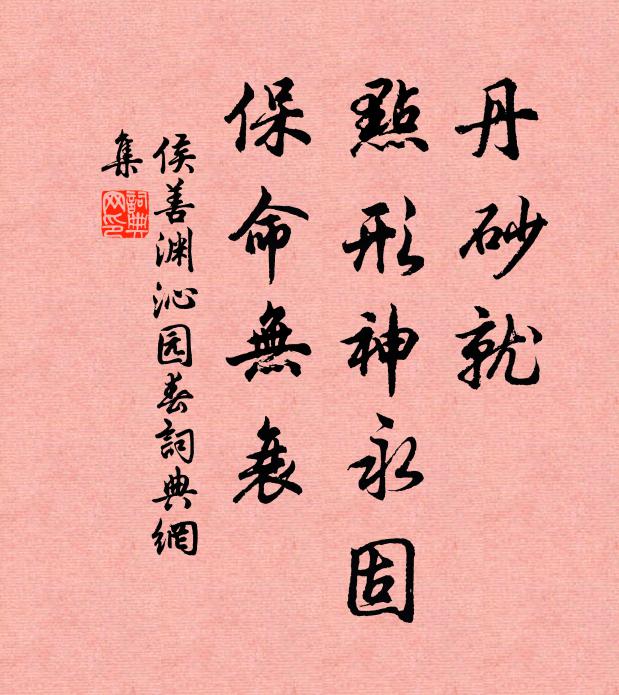 丹砂就
點形神永固
保命無衰
侯善渊沁园春詞典網
集
詞典网印